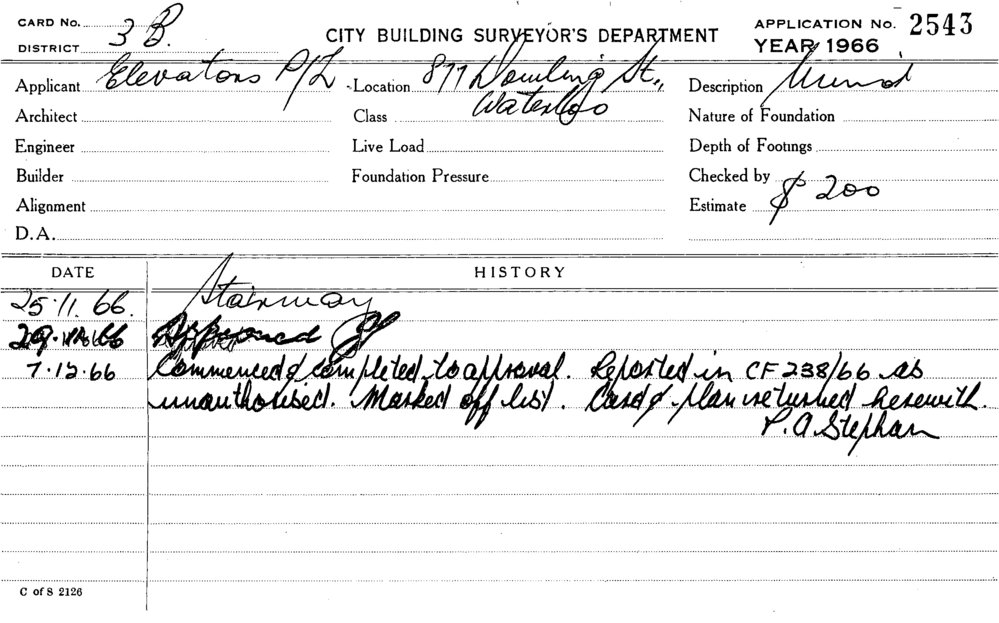 CARD No.
DISTRICT 3 B.
CITY BUILDING SURVEYOR'S DEPARTMENT
APPLICATION No. 2543
YEAR 1966
Applicant Elevators P/L
Location 877 Dowling St.,
Waterloo
Description Minor
Architect
Class
Nature of Foundation
Engineer
Live Load
Depth of Footings
Builder
Foundation Pressure
Checked by
Alignment
Estimate $ 200
D.A.
DATE HISTORY
25.11.66. Stairway
Approved
7.12.66 Commenced & completed to approval. Reported in CF 238/66 as
unauthorised. Marked off list. Card & plan returned herewith.
P.A. Stephan
C of S 2126